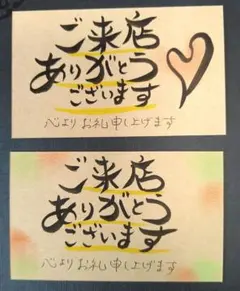 ご来店
ありがとう
ございます
心よりお礼申し上げます
ご来店
ありがとう
ございます
心よりお礼申し上げます